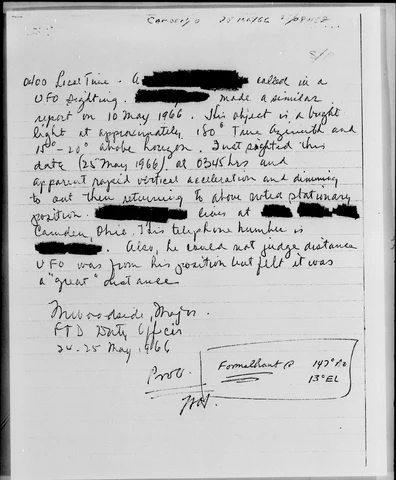 Camden, O 25 May 66
0400 Local Time - A called in a
UFO Sighting. made a similar
report on 10 May 1966. This object is a bright
light at approximately 180° True Azimuth and
-20° above horizon. First sighted this
date (25 May 1966) at 0345 hrs and
apparent rapid vertical acceleration and dimming
to out then returning to above noted stationary
position. lives at
Camden, Ohio. This telephone number is
. Also, he could not judge distance
UFO was from his position but felt it was
a "great" distance
Major
FTD Duty Officer
24-25 May 1966
Prob.
Formalhaut @ 147° Az
13° EL